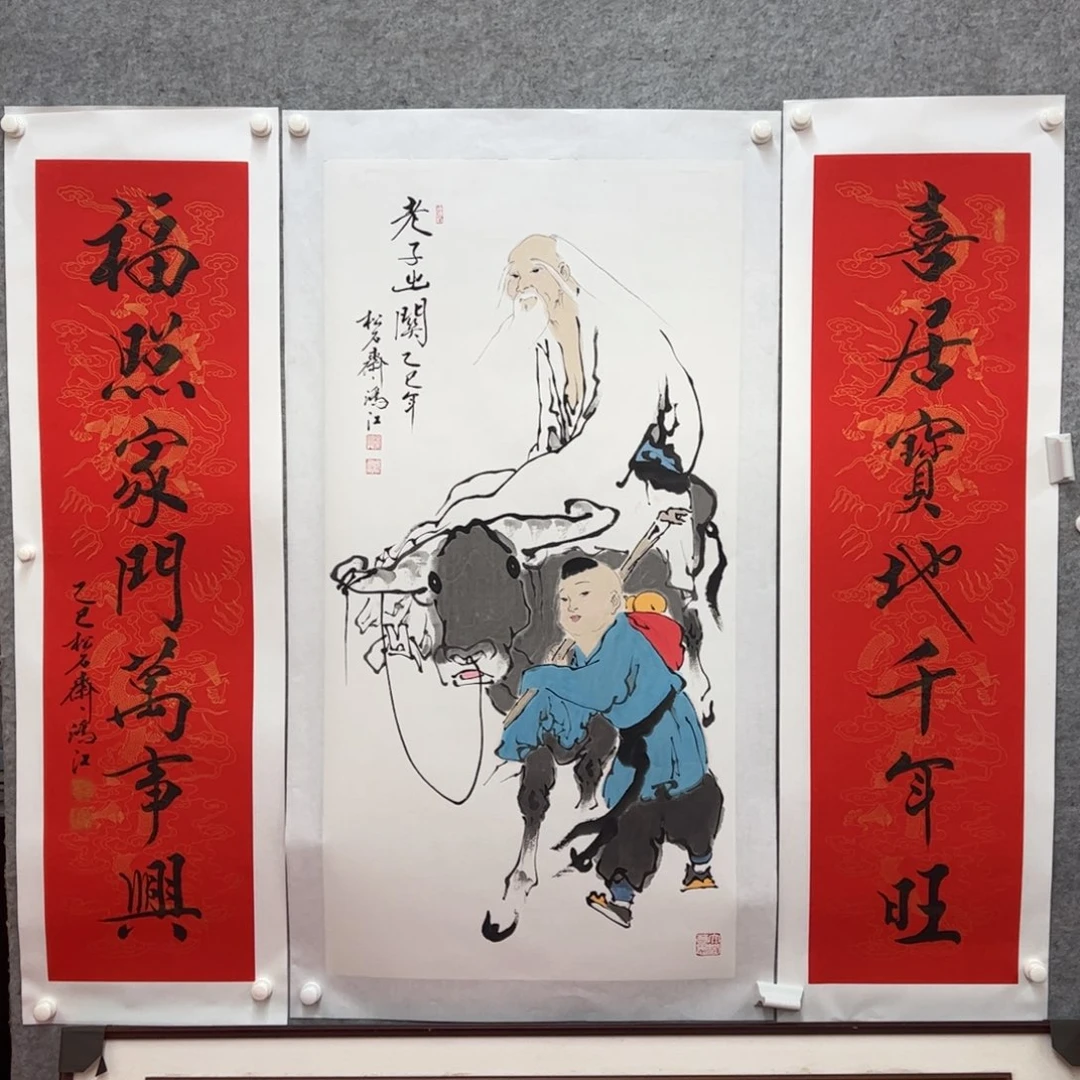 喜居寶地千年旺
老子出關乙巳年
松石齋鴻江
福照家門萬事興
乙巳松石齋鴻江